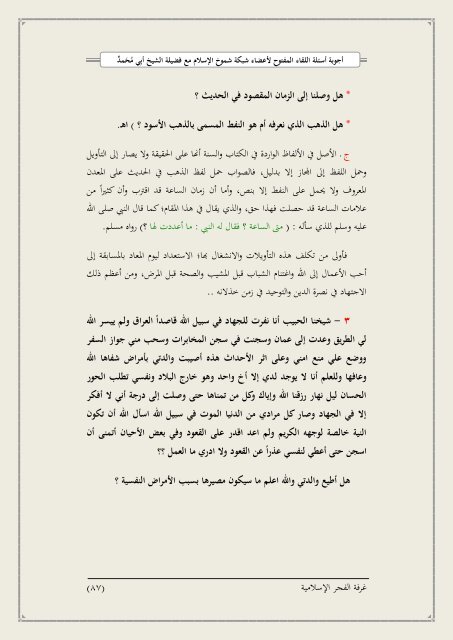 أجوبة أسئلة اللقاء المفتوح لأعضاء شبكة شموخ الإسلام مع فضيلة الشيخ أبي مُحَمدٌ
* هل وصلنا إلى الزمان المقصود في الحديث ؟
* هل الذهب الذي نعرفه أم هو النفط المسمى بالذهب الأسود ؟ ) اهـ.
ج . الأصل في الألفاظ الواردة في الكتاب والسنة أنها على الحقيقة ولا يصار إلى التأويل
وحمل اللفظ إلى المجاز إلا بدليل، فالصواب حمل لفظ الذهب في الحديث على المعدن
المعروف ولا يحمل على النفط إلا بنص، وأما أن زمان الساعة قد اقترب وأن كثيراً من
علامات الساعة قد حصلت فهذا حق، والذي يقال في هذا المقام؛ كما قال النبي صلى الله
عليه وسلم للذي سأله : ( متى الساعة ؟ فقال له النبي : ما أعددت لها ؟) رواه مسلم.
فأولى من تكلف هذه التأويلات والانشغال بها؛ الاستعداد ليوم المعاد بالمسابقة إلى
أحب الأعمال إلى الله واغتنام الشباب قبل المشيب والصحة قبل المرض، ومن أعظم ذلك
الاجتهاد في نصرة الدين والتوحيد في زمن خذلانه ..
٣ – شيخنا الحبيب أنا نفرت للجهاد في سبيل الله قاصداً العراق ولم ييسر الله
لي الطريق وعدت إلى عمان وسجنت في سجن المخابرات وسحب مني جواز السفر
ووضع علي منع امني وعلى اثر الأحداث هذه أصيبت والدتي بأمراض شفاها الله
وعافها وللعلم أنا لا يوجد لدي إلا أخ واحد وهو خارج البلاد ونفسي تطلب الحور
الحسان ليل نهار رزقنا الله وإياك وكل من تمناها حتى وصلت إلى درجة أني لا أفكر
إلا في الجهاد وصار كل مرادي من الدنيا الموت في سبيل الله اسأل الله أن تكون
النية خالصة لوجهه الكريم ولم اعد اقدر على القعود وفي بعض الأحيان أتمنى أن
اسجن حتى أعطي لنفسي عذراً عن القعود ولا ادري ما العمل ؟؟
هل أطيع والدتي والله اعلم ما سيكون مصيرها بسبب الأمراض النفسية ؟
غرفة الفجر الإسلامية
(٨٧)